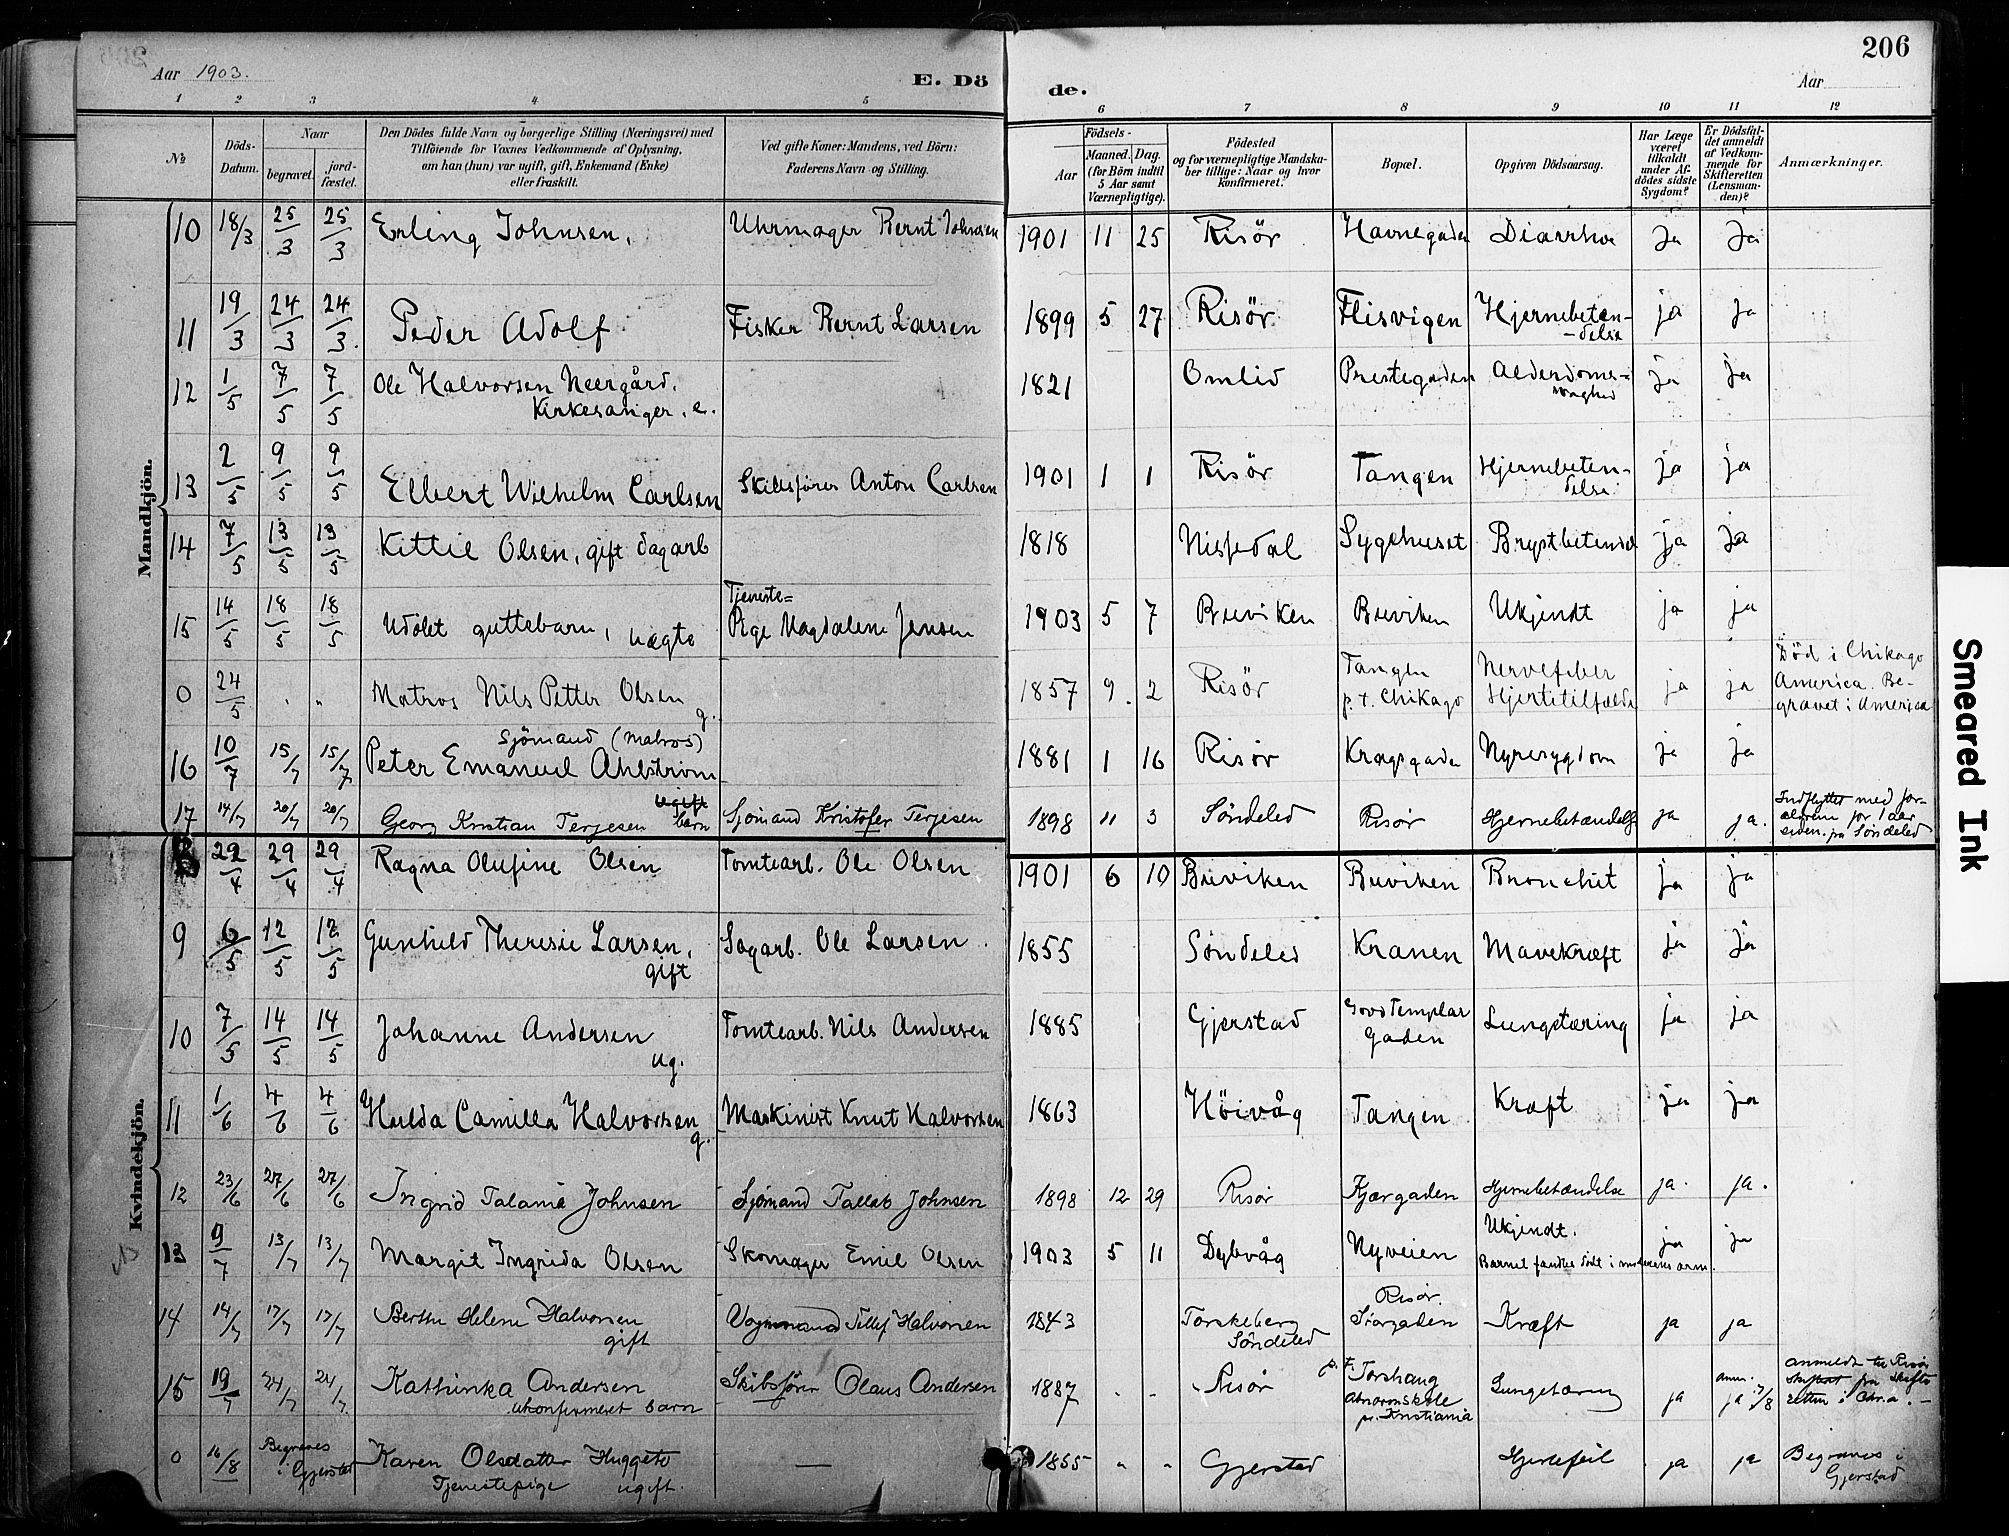 206
Aar 1903.
E. Dö de.
Aar
1 2 3 4 5 6 7 8 9 10 11 12
No
Döds-Datum.
Naar
begravet.
jord-fæstet.
Den Dödes fulde Navn og borgerlige Stilling (Næringsvei) med
Tilföiende for Voxnes Vedkommende af Oplysning,
om han (hun) var ugift, gift, Enkemand (Enke)
eller fraskilt.
Ved gifte Koner: Mandens, ved Börn:
Faderens Navn og Stilling.
Födsels-
Aar
Maaned. Dag.
(for Börn indtil
5 Aar samt
Værnepligtige).
Födested
og for værnepligtige Mandska-
ber tillige: Naar og hvor
konfirmeret.
Bopæl.
Opgiven Dödsaarsag.
Har Læge
været
tilkaldt
under Af-
dödes sidste
Sygdom?
Er Dödsfal-
det anmeldt
af Vedkom-
mende for
Skifteretten
(Lensman-
den)?
Anmærkninger.
Mandkjön.
10 18/3 25/3 25/3 Erling Johnsen. Uhrmager Bernt Johnsen 1901 11 25 Risör Havnegaden Diarrhoe ja ja
11 19/3 24/3 24/3. Peder Adolf Fisker Bernt Larsen 1899 5 27 Risör Flisvigen Hjernebeten-
-delse ja ja
12 1/5 7/5 7/5 Ole Halvorsen Neergård.
Kirkesanger, e. 1821 Omlid Prestegaden Alderdoms=
svaghed ja ja
13 2/5 9/5 9/5 Elbert Wilhelm Carlsen Skibsförer Anton Carlsen 1901 1 1 Risör Tangen Hjernebeten-
delse ja ja
14 7/5 13/5 13/5 Kittil Olsen, gift dagarb 1818 Nissedal Sygehuset Brystbetendel ja ja
15 14/5 18/5 18/5 Udöbt guttebarn, uægte Tjeneste=
Pige Magdalene Jensen 1903 5 7 Buviken Buviken Ukjendt ja ja
0 24/5 " " Matros Nils Petter Olsen g. 1857 9 2 Risör Tangen
p.t. Chikago Nervefeber
Hjertetilfælde ja ja Död i Chikago
America. Be-
gravet i America
16 10/7 15/7 15/7 Sjömand (Matros)
Peter Emanuel Ahlström 1881 1 16 Risör Kragsgaden Nyresygdom ja ja
17 14/7 20/7 20/7 Georg Kristian Terjesen ugift
barn Sjömand Kristofer Terjesen 1898 11 3 Söndeled Risör Hjernebetændelse ja ja. Indflyttet med for-
ældrene for 1 aar
siden fra Söndeled
Kvindekjön.
8 22/4 29/4 29/4 Ragna Olufine Olsen Tomtearb. Ole Olsen 1901 6 10 Buviken Buviken Bronchit ja ja
9 6/5 12/5 12/5 Gunhild Theresie Larsen,
gift Sagarb. Ole Larsen. 1855 Söndeled Kranen Mavekræft ja ja
10 7/5 14/5 14/5 Johanne Andersen
ug. Tomtearb. Nils Andersen 1885 Gjerstad Good Templar
Gaden Lungetæring ja ja
11 1/6 4/6 4/6 Hulda Camilla Halvorsen
g. Maskinist Knut Halvorsen 1863 Höivåg Tangen Kræft ja ja
12 23/6 27/6 27/6 Ingrid Talania Johnsen Sjömand Tallab Johnsen 1898 12 29 Risör Kjærgaden Hjernebetændelse ja. ja.
13 9/7 13/7 13/7 Margit Ingrida Olsen Skomager Emil Olsen 1903 5 11 Dybvåg Nyveien Ukjendt.
Barnet fandtes dödt i moderens arm. ja ja
14 14/7 17/7 17/7 Berthe Helene Halvorsen
gift Vognmand Tellef Halvorsen 1843 Torskeberg
Söndeled Risör.
Storgaden Kræft ja ja
15 19/7 24/7 24/7. Kathinka Andersen
ukonfirmeret barn Skibsförer Olaus Andersen 1887 " " Risör p. t. Torshaug
Abnormskole
pr. Kristiania Lungetæring ja anm.
ja 17/8 anmeldt til Risör
fra Skifte
retten i Chr.a. -
0 16/8 Begraves
i Gjerstad Karen Olsdatter Huggeto
Tjenestepige ugift. — 1855 " " Gjerstad Hjertefeil ja ja Begraves i
Gjerstad
Smeared Ink